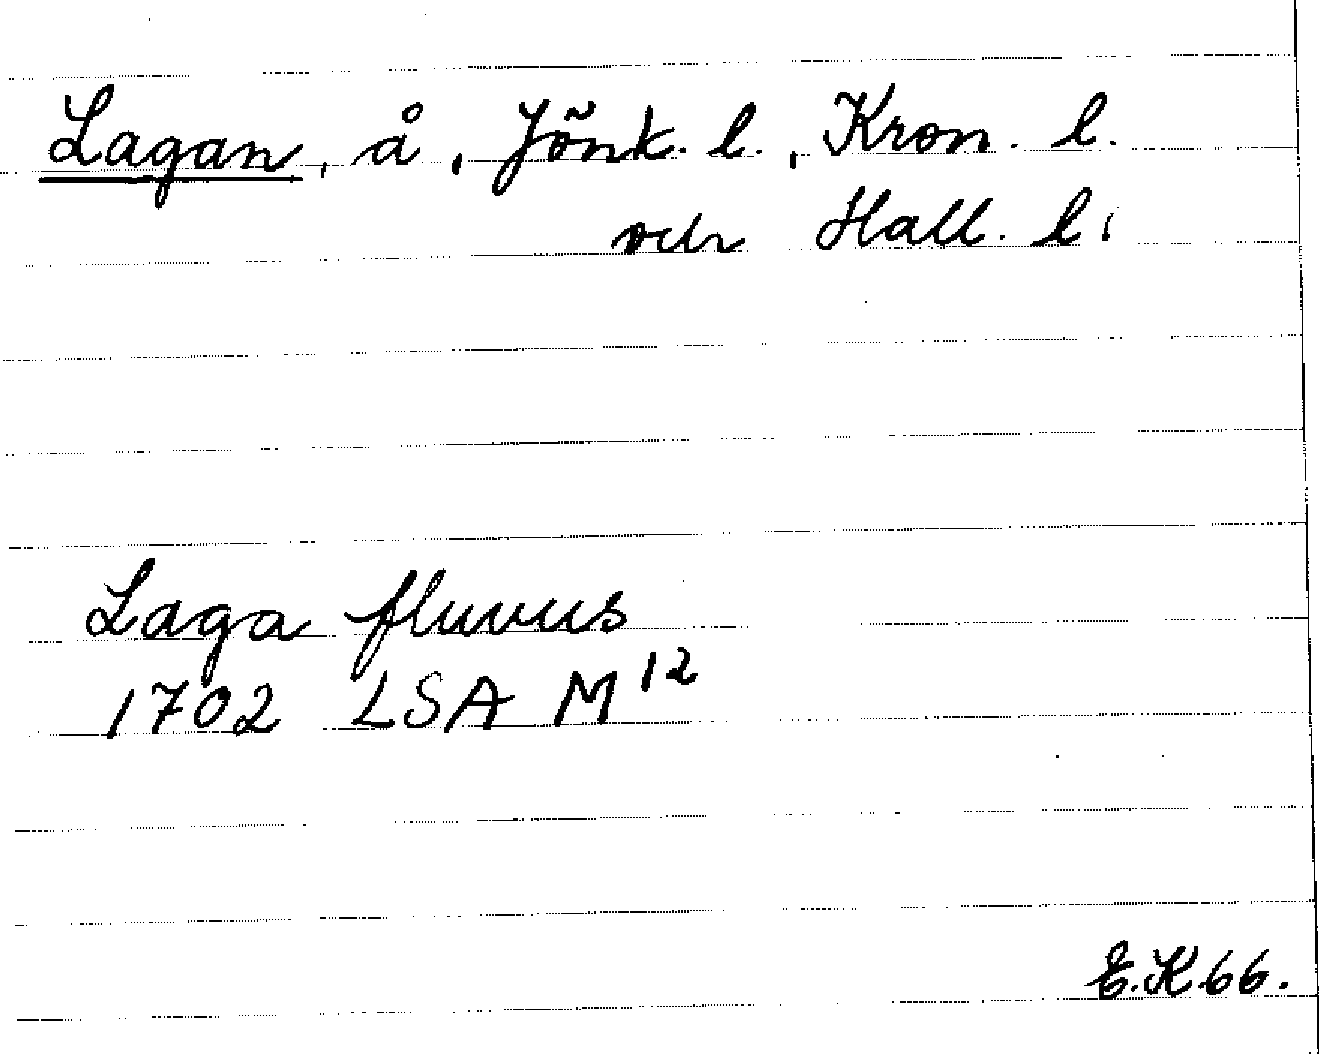 Lagan, å, Jönk. l., Kron. l.
och Hall. l.
Laga fluvus
1702 LSA M¹²
E.K.66.